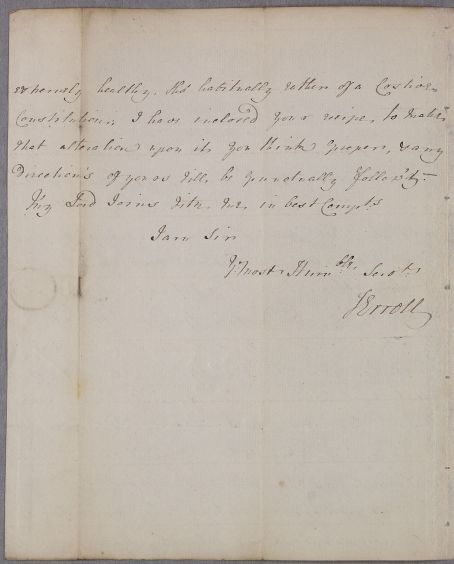 extremely healthy. tho' habitually rather of a Costive
Constitution, I have inclosed your recipe, to make
that alteration upon it, you think proper, & any
Direction's of yours will be punctually follow'd.
My Lord Joins with me, in best Compts
I am Sir
Yr most Humble Servt
Erroll